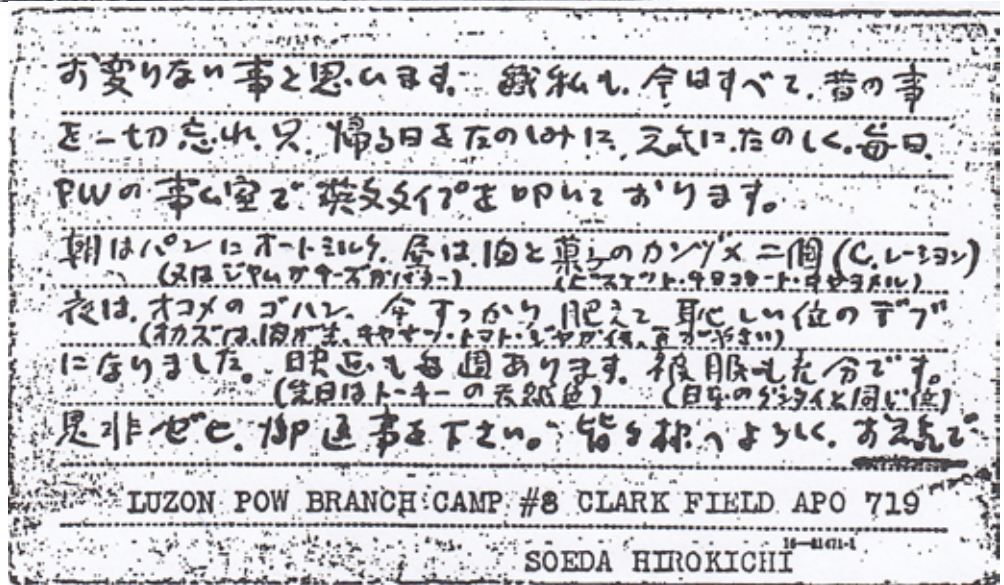 お変りない事と思います。私も、今はすべて、昔の事
を一切忘れ、只、帰る日をたのしみに、元気にたのしく、毎日、
PWの事ム室で、英文タイプを叩いております。
朝はパンにオートミルク、昼は、肉と菓子のカンヅメ二個(C.レーション)
(又はジャムかチーズかバター) (ビスケット・チョコレート・キャラメル)
夜は、オコメのゴハン、今すっかり、肥えて、恥しい位のデブ
(オカズは、肉が主、キャベツ・トマト・ジャガイモ、豆がやさい)
になりました。映画も毎週あります。被服も充分です。
(先日はトーキーの天然色) (日本のグンタイと同じ位)
是非ゼヒ、御返事を下さい。皆々様へよろしく、お元気で
LUZON POW BRANCH CAMP #8 CLARK FIELD APO 719
16—81471-1
SOEDA HIROKICHI